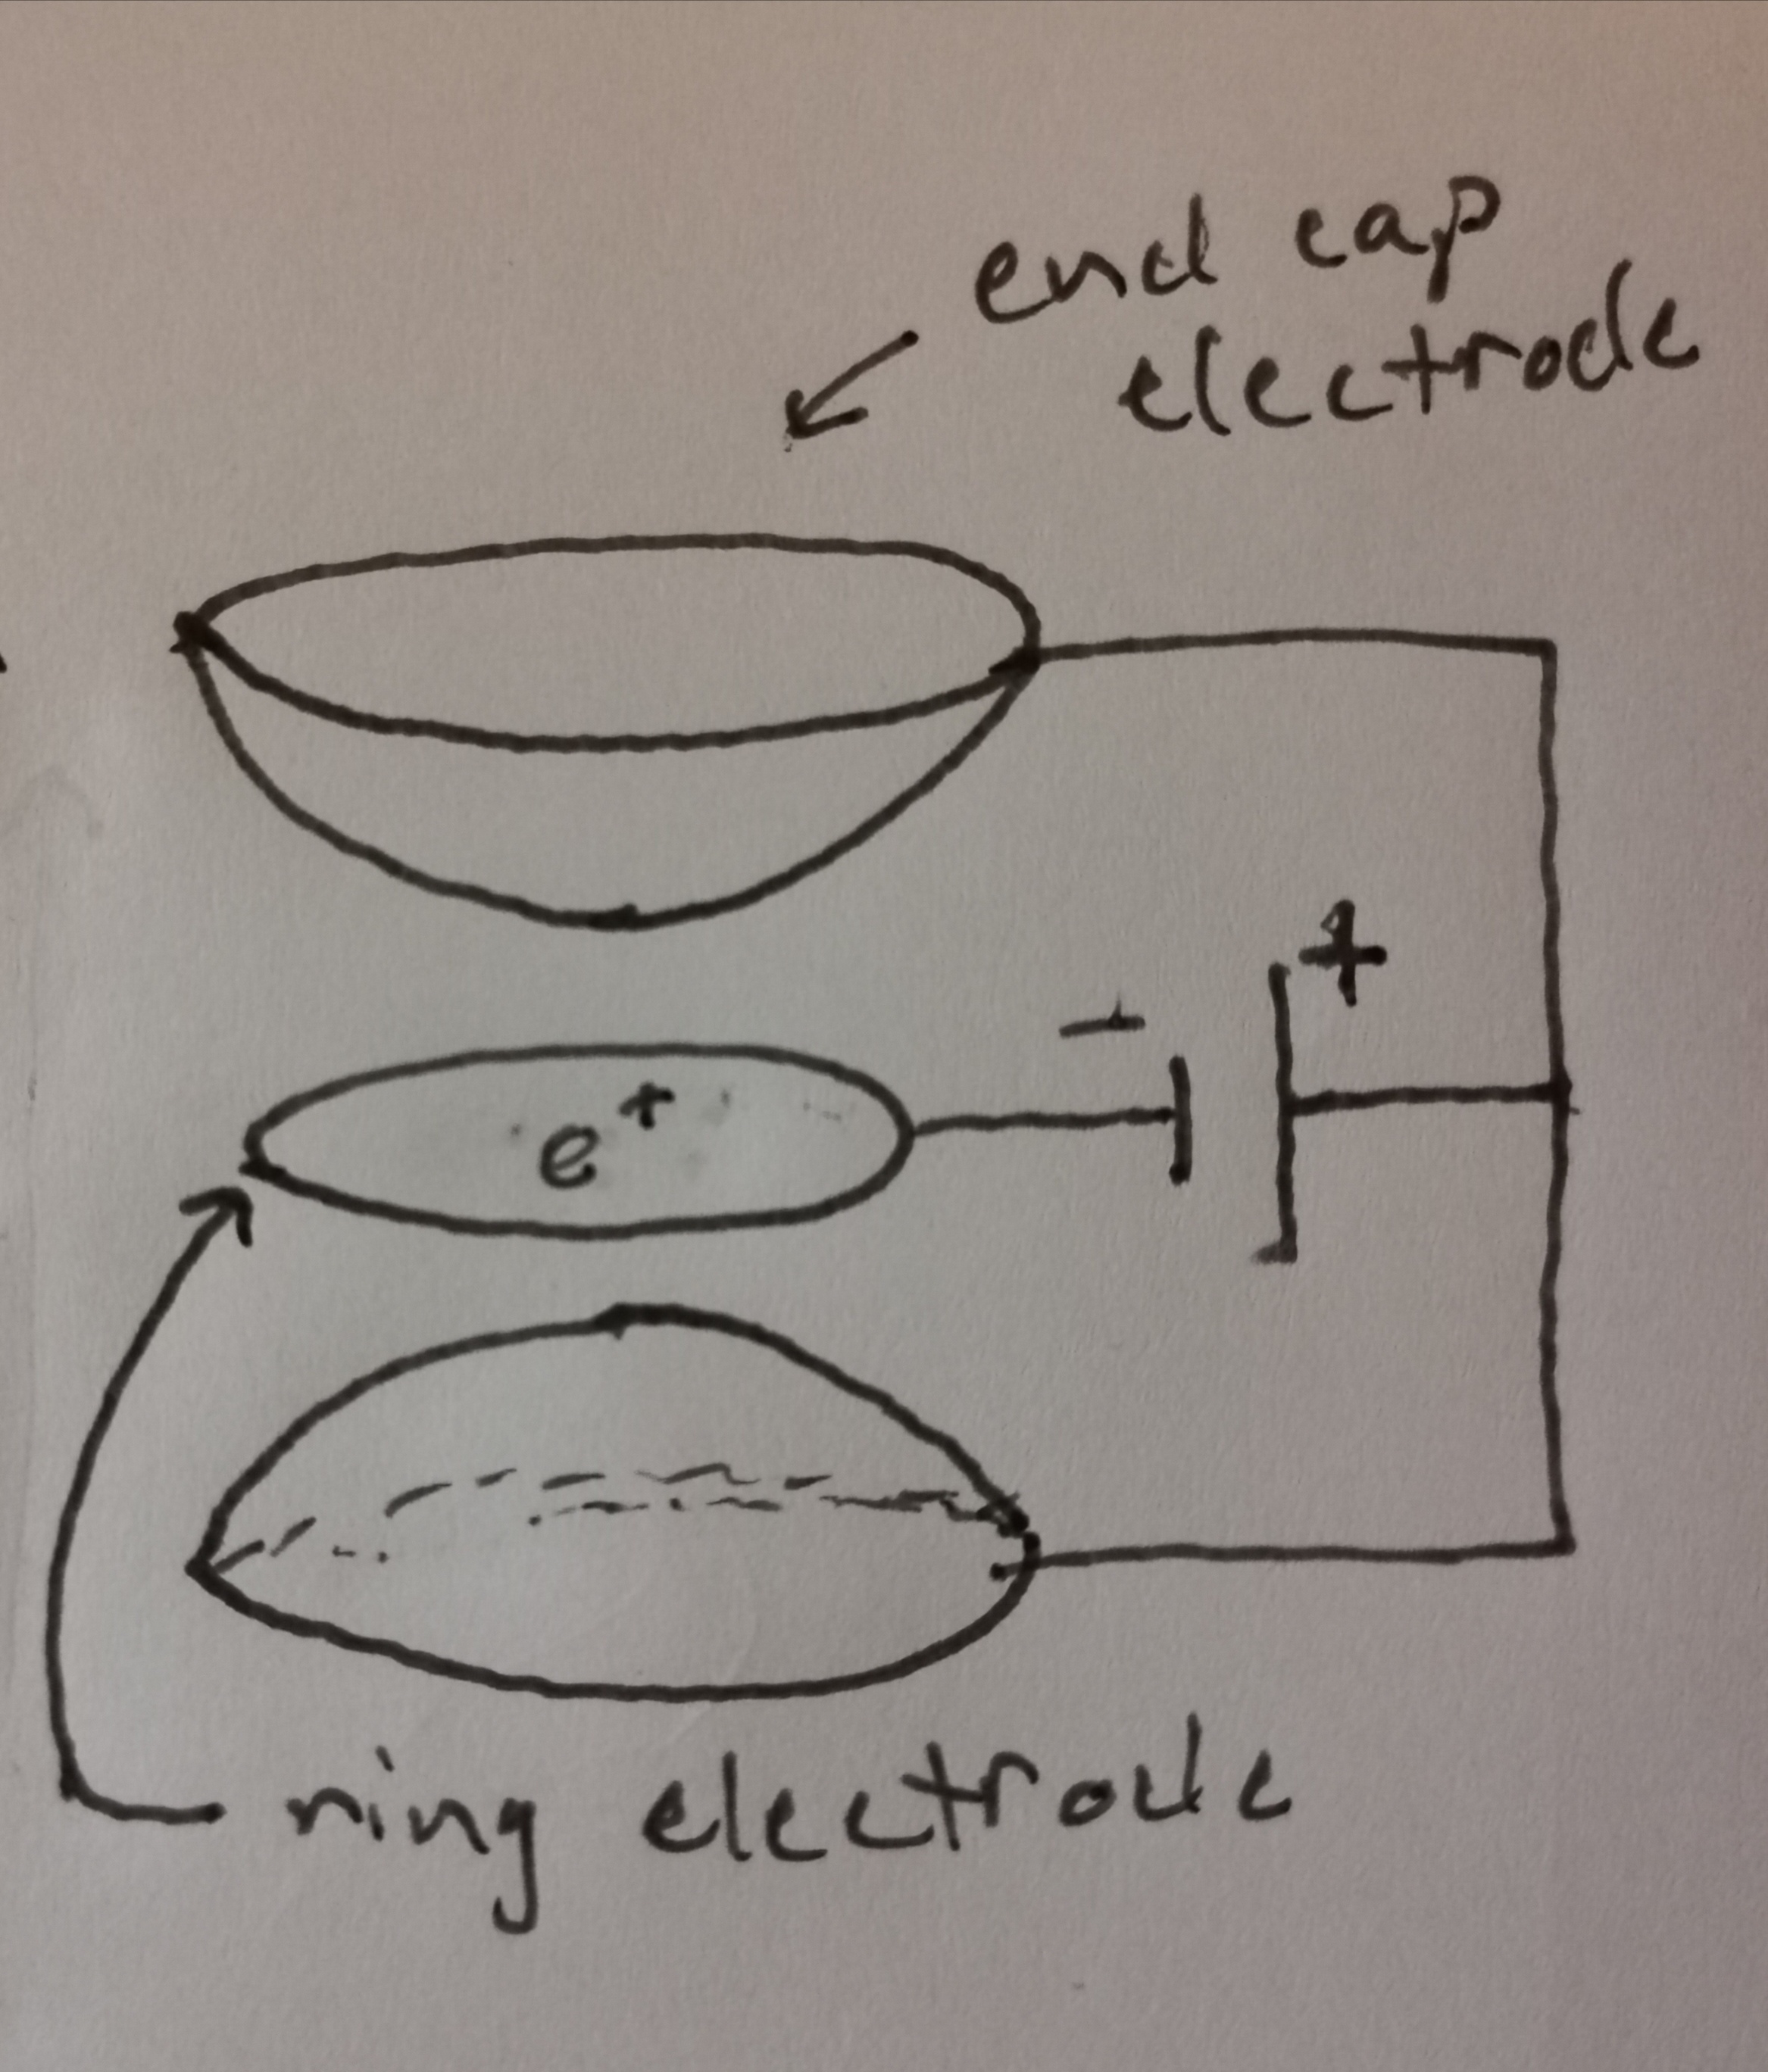 end cap
electrode
+
-
e+
ring electrode